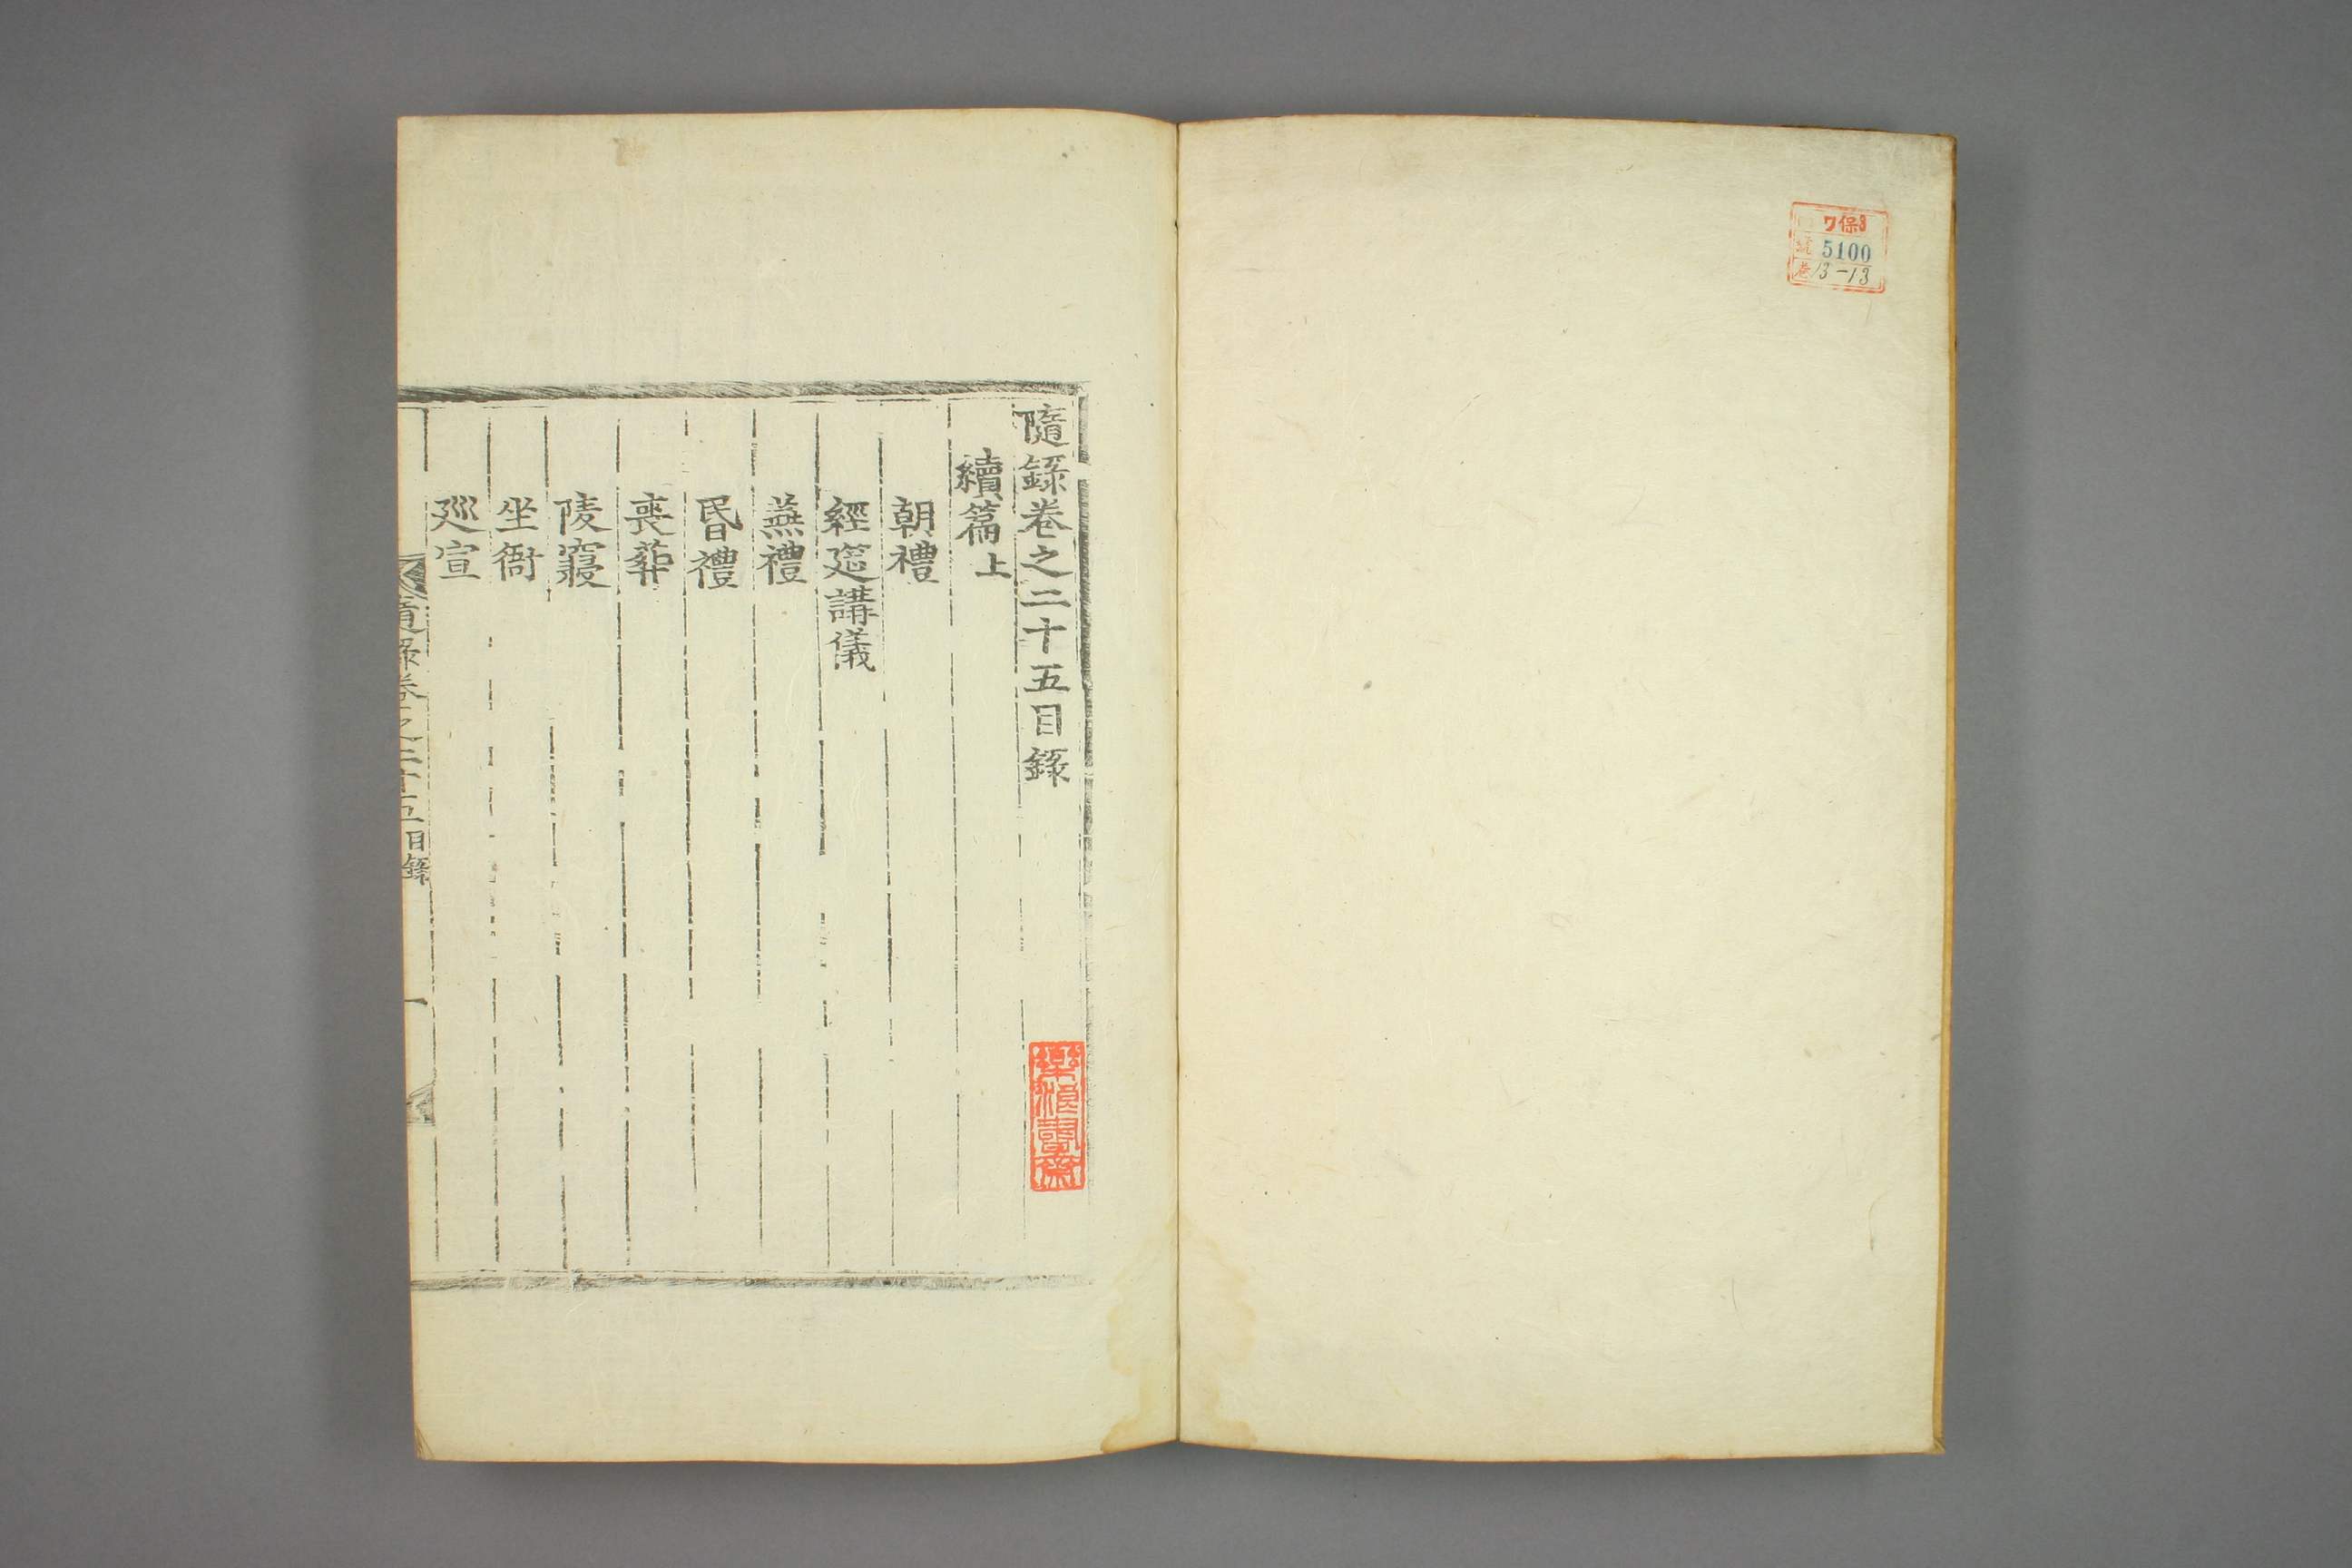 ワ保3
號 5100
卷 13-13
隨錄卷之二十五目錄
續篇上
朝禮
經筵講儀
燕禮
昏禮
喪葬
陵寢
坐衙
廵宣
隨錄卷之二十五目錄
一